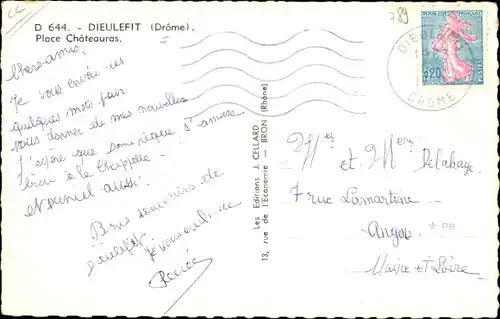 CC
D 644. - DIEULEFIT (Drôme).
Place Châteauras.
789
Chers amis.
Je vous envoie ces
quelques mots pour
vous donner de mes nouvelles
J'espère que dominique s'amuse
bien à la Chappelle
et Daniel aussi.
Bons souvenirs de
Dieulefit.
Je vous
Renée
Les Editions J. CELLARD
13, rue de l'Economie - BRON (Rhône)
DIEULEFIT
DROME
REPUBLIQUE FRANCAISE
0,20
POSTES
et Delahaye
7 rue Lamartine
Angers
* PB
Maine et Loire